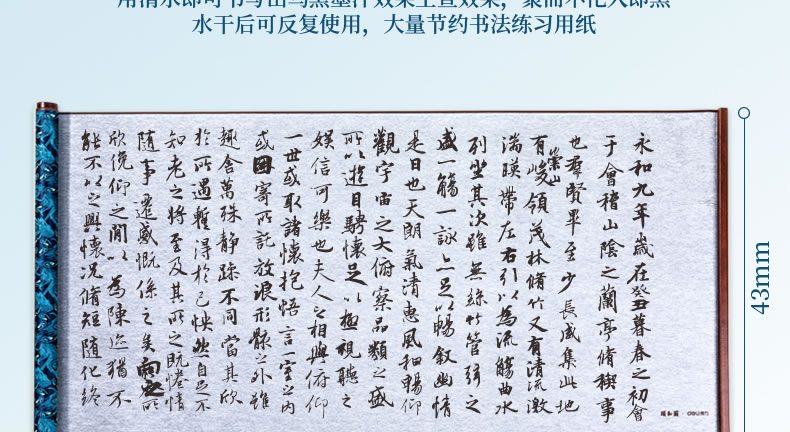 水干后可反复使用，大量节约书法练习用纸
永和九年歲在癸丑暮春之初會
于會稽山陰之蘭亭脩禊事
也羣賢畢至少長咸集此地
有崇山峻領茂林脩竹又有清流激
湍暎帶左右引以為流觴曲水
列坐其次雖無絲竹管弦之
盛一觴一詠亦足以暢敘幽情
是日也天朗氣清惠風和暢仰
觀宇宙之大俯察品類之盛
所以遊目騁懷足以極視聽之
娛信可樂也夫人之相與俯仰
一世或取諸懷抱悟言一室之內
或因寄所託放浪形骸之外雖
趣舍萬殊靜躁不同當其欣
於所遇暫得於己怏然自足不
知老之將至及其所之既惓情
隨事遷感慨係之矣向之所
欣俛仰之閒以為陳迹猶不
能不以之興懷況脩短隨化終
43mm